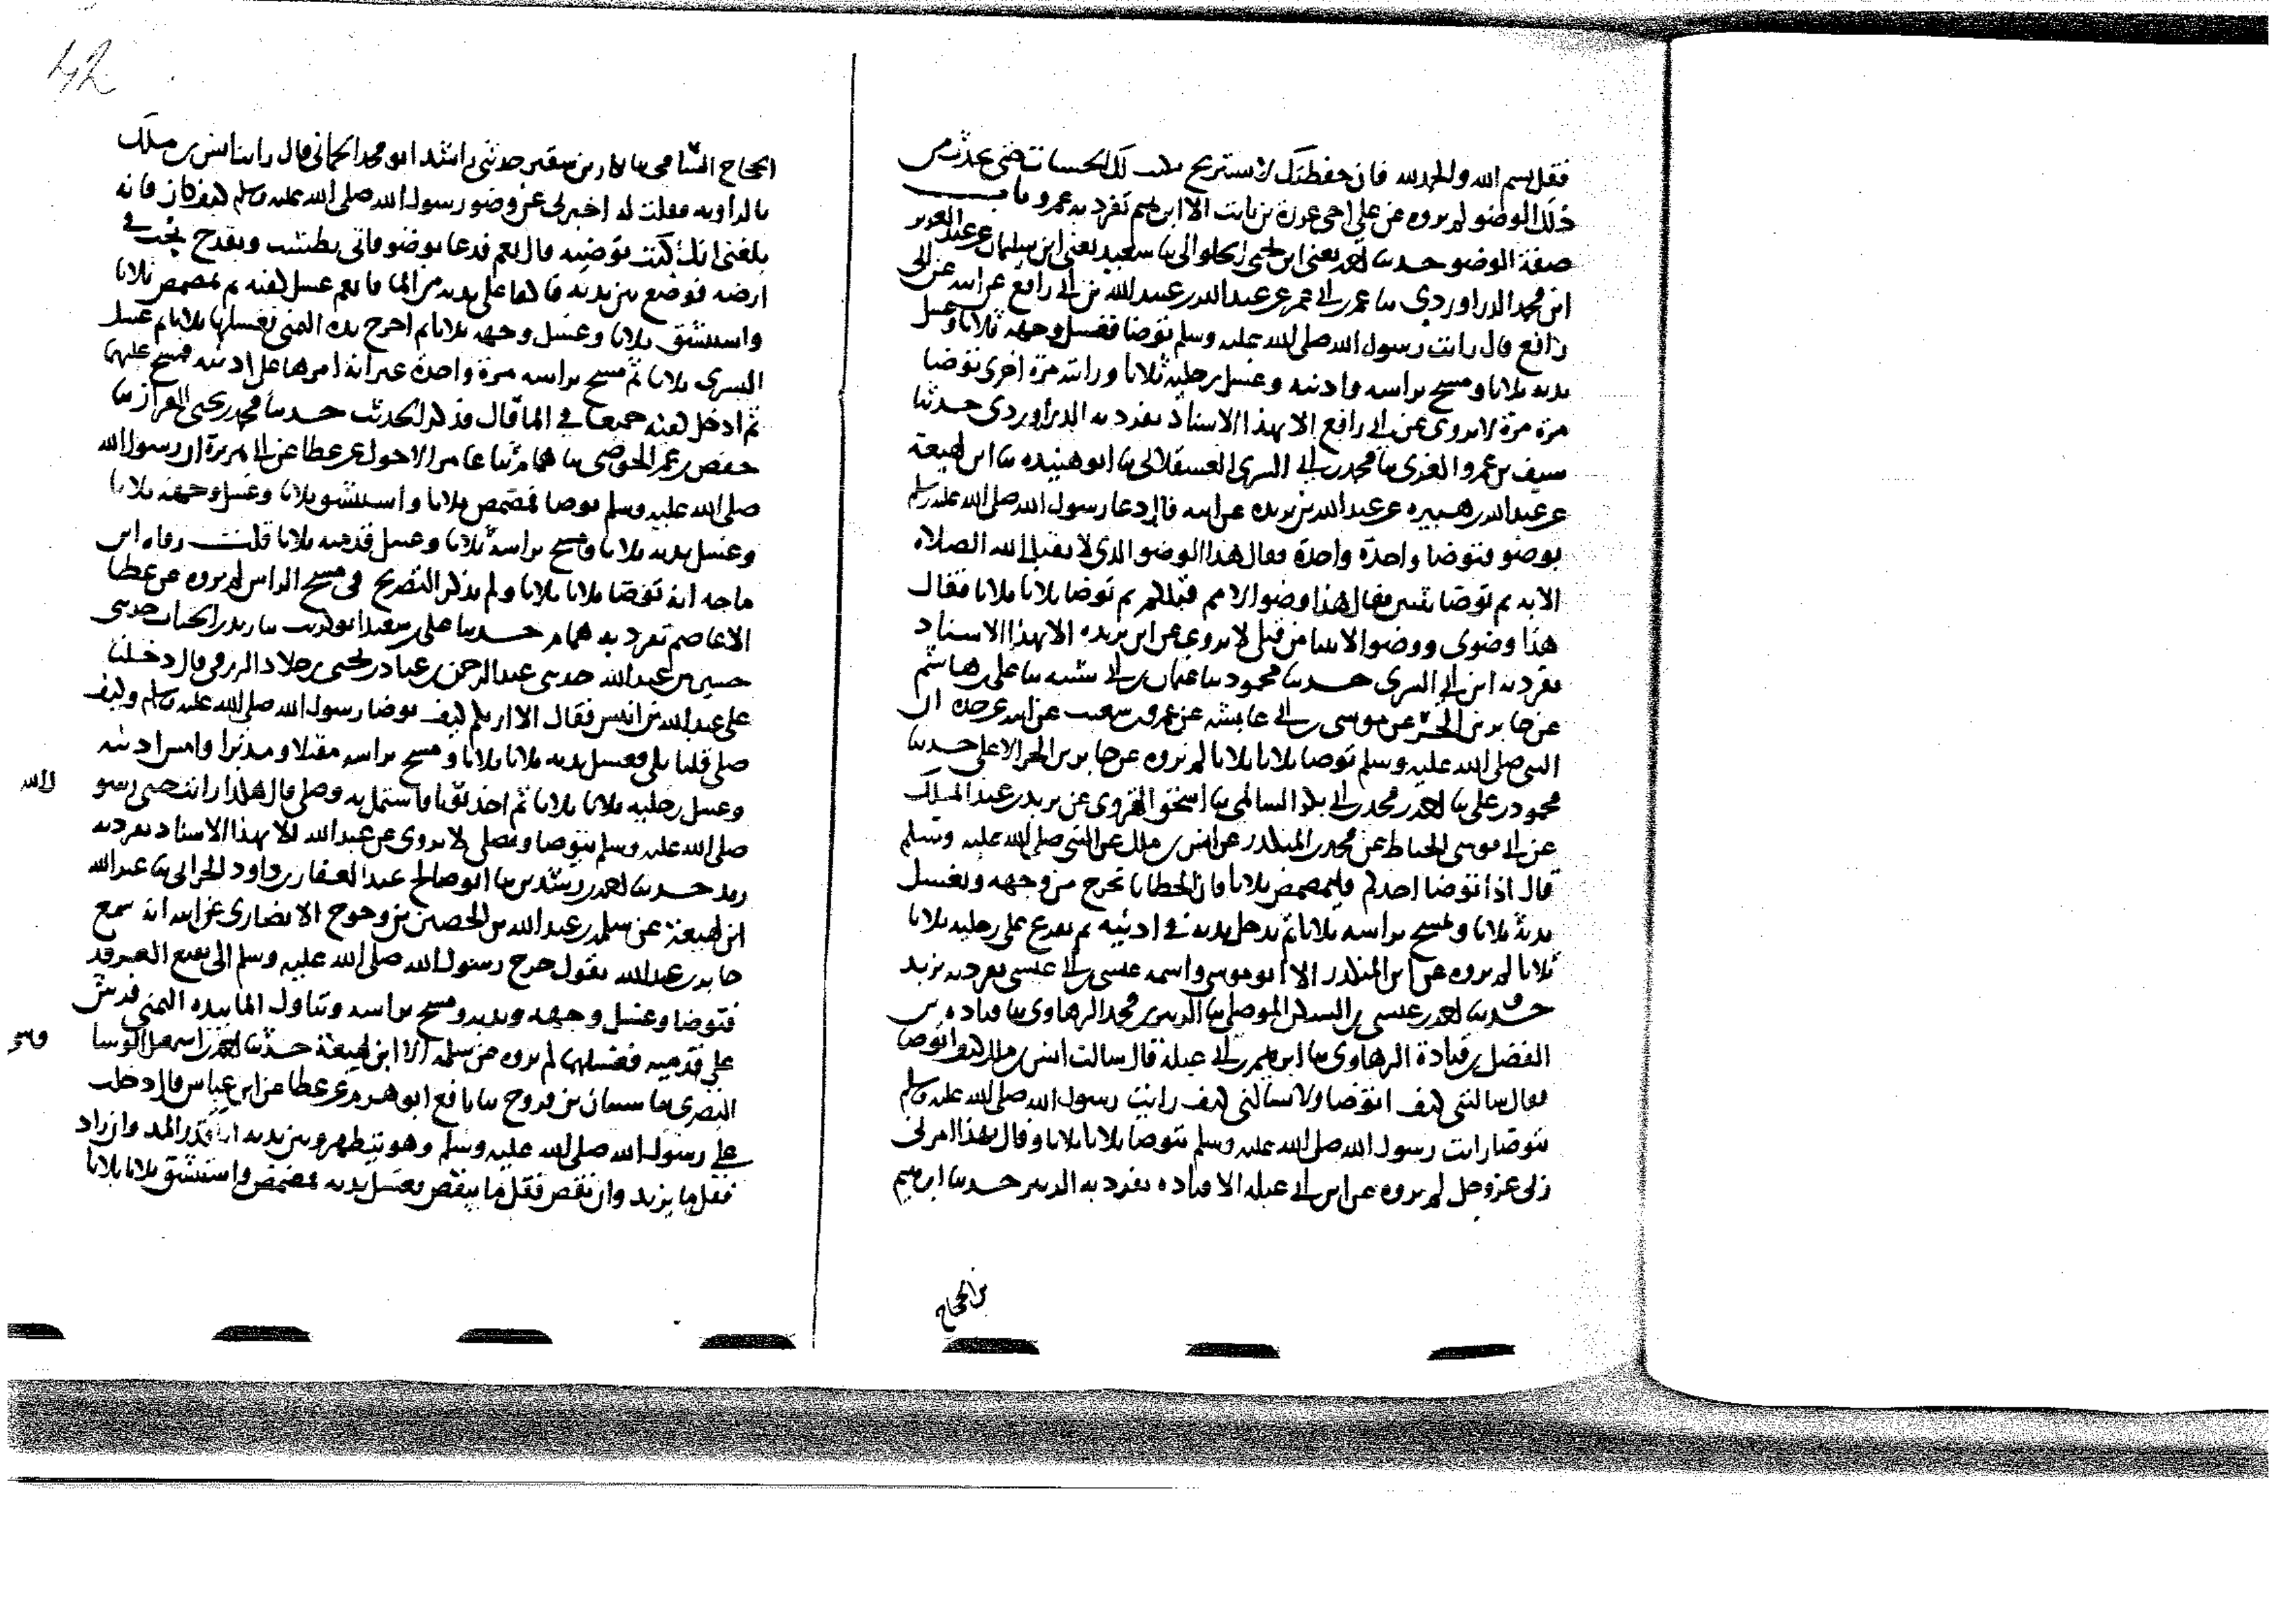 فقل بسم الله والحمد لله فان حفظتك لا تستريح تكتب لك الحسنات حتى تحدث من
ذلك الوضو لم يروه عن علي اخي عزرة بن ثابت الا ابراهيم تفرد به عمرو باب
صفة الوضو حدثنا احمد يعني ابن يحيى الحلواني ثنا سعيد يعني ابن سليمان عن عبد العزيز
ابن محمد الدراوردي ثنا عمرو بن ابي عمرو عن عبد الله بن عبيد الله بن ابي رافع عن ابيه عن ابي
رافع قال رايت رسول الله صلى الله عليه وسلم توضا فغسل وجهه ثلاثا وغسل
يديه ثلاثا ومسح براسه واذنيه وغسل رجليه ثلاثا ورايته مرة اخرى توضا
مرة مرة لا يروى عن ابي رافع الا بهذا الاسناد تفرد به الدراوردي حدثنا
سيف بن عمرو الغزي ثنا محمد بن ابي السري العسقلاني ثنا ابن لهيعة
عن عبد الله بن هبيرة عن عبد الله بن بريده عن ابيه قال دعا رسول الله صلى الله عليه وسلم
بوضو فتوضا واحدة واحدة فقال هذا الوضو الذي لا يقبل الله الصلاه
الا به ثم توضا ثنتين فقال هذا وضو الامم قبلكم ثم توضا ثلاثا ثلاثا فقال
هذا وضوي ووضو الانبيا من قبلي لا يروى عن ابن بريده الا بهذا الاسناد
تفرد به ابن ابي السري حدثنا محمود ثنا عثمان بن ابي شيبه ثنا علي بن هاشم
عن جابر بن الحر عن موسى بن ابي عايشه عن عمرو بن شعيب عن ابيه عن جده ان
النبي صلى الله عليه وسلم توضا ثلاثا ثلاثا لم يروه عن جابر بن الحر الا علي حدثنا
محمود بن علي ثنا احمد بن محمد بن ابي بكر السالمي ثنا اسحق الفروي عن يزيد بن عبد الملك
عن ابي موسى الحناط عن محمد بن المنكدر عن انس بن ملك عن النبي صلى الله عليه وسلم
قال اذا توضا احدكم فليمضمض ثلاثا فان الخطايا تخرج من وجهه ويغسل
يديه ثلاثا ويمسح براسه ثلاثا ثم يدخل يديه في اذنيه ثم يفرغ على رجليه ثلاثا
ثلاثا لم يروه عن ابن المنكدر الا ابو موسى واسمه عيسى بن ابي عيسى تفرد به يزيد
حدثنا احمد بن عيسى بن السكن الموصلي ثنا الزبير بن محمد الرهاوي ثنا قتاده بن
الفضل بن قتادة الرهاوي ثنا ابراهيم بن ابي عبلة قال سالت انس بن ملك كيف اتوضا
فقال سالتني كيف اتوضا ولا تسالني كيف رايت رسول الله صلى الله عليه وسلم
يتوضا رايت رسول الله صلى الله عليه وسلم يتوضا ثلاثا ثلاثا وقال بهذا امرني
ربي عز وجل لم يروه عن ابن ابي عبله الا قتاده تفرد به الزبير حدثنا ابراهيم
بن الحجاج
الحجاج السامي ثنا بكار بن سقير حدثني راشد ابو محمد الحماني قال رايت انس بن ملك
بالزاويه فقلت له اخبرني عن وضو رسول الله صلى الله عليه وسلم كيف كان فانه
بلغني انك كنت توضيه قال نعم فدعا بوضو فاتي بطشت وبقدح نحت في
ارضه فوضع بين يديه فاكفا على يديه من الما فانعم غسل كفيه ثم تمضمض ثلاثا
واستنشق ثلاثا وغسل وجهه ثلاثا ثم اخرج يده اليمنى فغسلها ثلاثا ثم غسل
اليسرى ثلاثا ثم مسح براسه مرة واحدة غير انه امرها على اذنيه فمسح عليهما
ثم ادخل كفيه جميعا في الما قال فذكر الحديث حدثنا محمد بن يحيى القزاز ثنا
حفص بن عمر الحوضي ثنا همام ثنا عامر الاحول عن عطا عن ابي هريرة ان رسول الله
صلى الله عليه وسلم توضا فمضمض ثلاثا واستنشق ثلاثا وغسل وجهه ثلاثا
وغسل يديه ثلاثا ومسح براسه ثلاثا وغسل قدميه ثلاثا قلت رواه ابن
ماجه انه توضا ثلاثا ثلاثا ولم يذكر التصريح في مسح الراس لم يروه عن عطا
الا عاصم تفرد به همام حدثنا علي بن سعيد ثنا ابو كريب ثنا زيد بن الحباب حدثني
حسين بن عبد الله حدثني عبد الرحمن بن عباد بن يحيى بن خلاد الزرقي قال دخلنا
على عبد الله بن انيس فقال الا اريكم كيف توضا رسول الله صلى الله عليه وسلم وكيف
صلى قلنا بلى فغسل يديه ثلاثا ثلاثا ومسح براسه مقبلا ومدبرا وامس اذنيه
وغسل رجليه ثلاثا ثلاثا ثم اخذ ثوبا فاشتمل به وصلى وقال هكذا رايت حبي رسو
ل الله
صلى الله عليه وسلم يتوضا ويصلي لا يروى عن عبد الله الا بهذا الاسناد تفرد به
زيد حدثنا احمد بن رشدين ثنا ابو صالح عبد الغفار بن داود الحراني ثنا عبد الله
ابن لهيعة عن سلمة بن عبد الله بن الحصين بن وحوح الانصاري عن ابيه انه سمع
جابر بن عبد الله يقول خرج رسول الله صلى الله عليه وسلم الى بقيع الغرقد
فتوضا وغسل وجهه ويديه ومسح براسه وتناول الما بيده اليمنى فرش
على قدميه فغسلهما لم يروه عن سلمة الا ابن لهيعة حدثنا احمد بن اسمعيل الوسا
وسي
البصري ثنا شيبان بن فروخ ثنا نافع ابو هرمز عن عطا عن ابن عباس قال دخلت
على رسول الله صلى الله عليه وسلم وهو يتطهر وبين يديه انا قدر المد وان زاد
فقل ما يزيد وان نقص فقل ما ينقص فغسل يديه فمضمض واستنشق ثلاثا ثلاثا